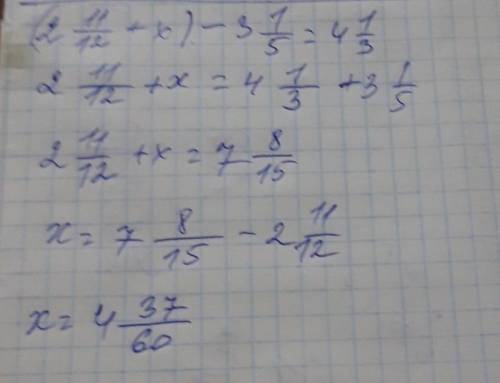 (2 11/12 + x) - 3 1/5 = 4 1/3
2 11/12 + x = 4 1/3 + 3 1/5
2 11/12 + x = 7 8/15
x = 7 8/15 - 2 11/12
x = 4 37/60